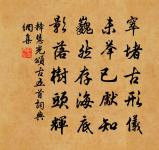 窣堵古形儀
未举已獻知
巍然存海底
影落樹頭輝
釋慧光頌古五首詞典
網集